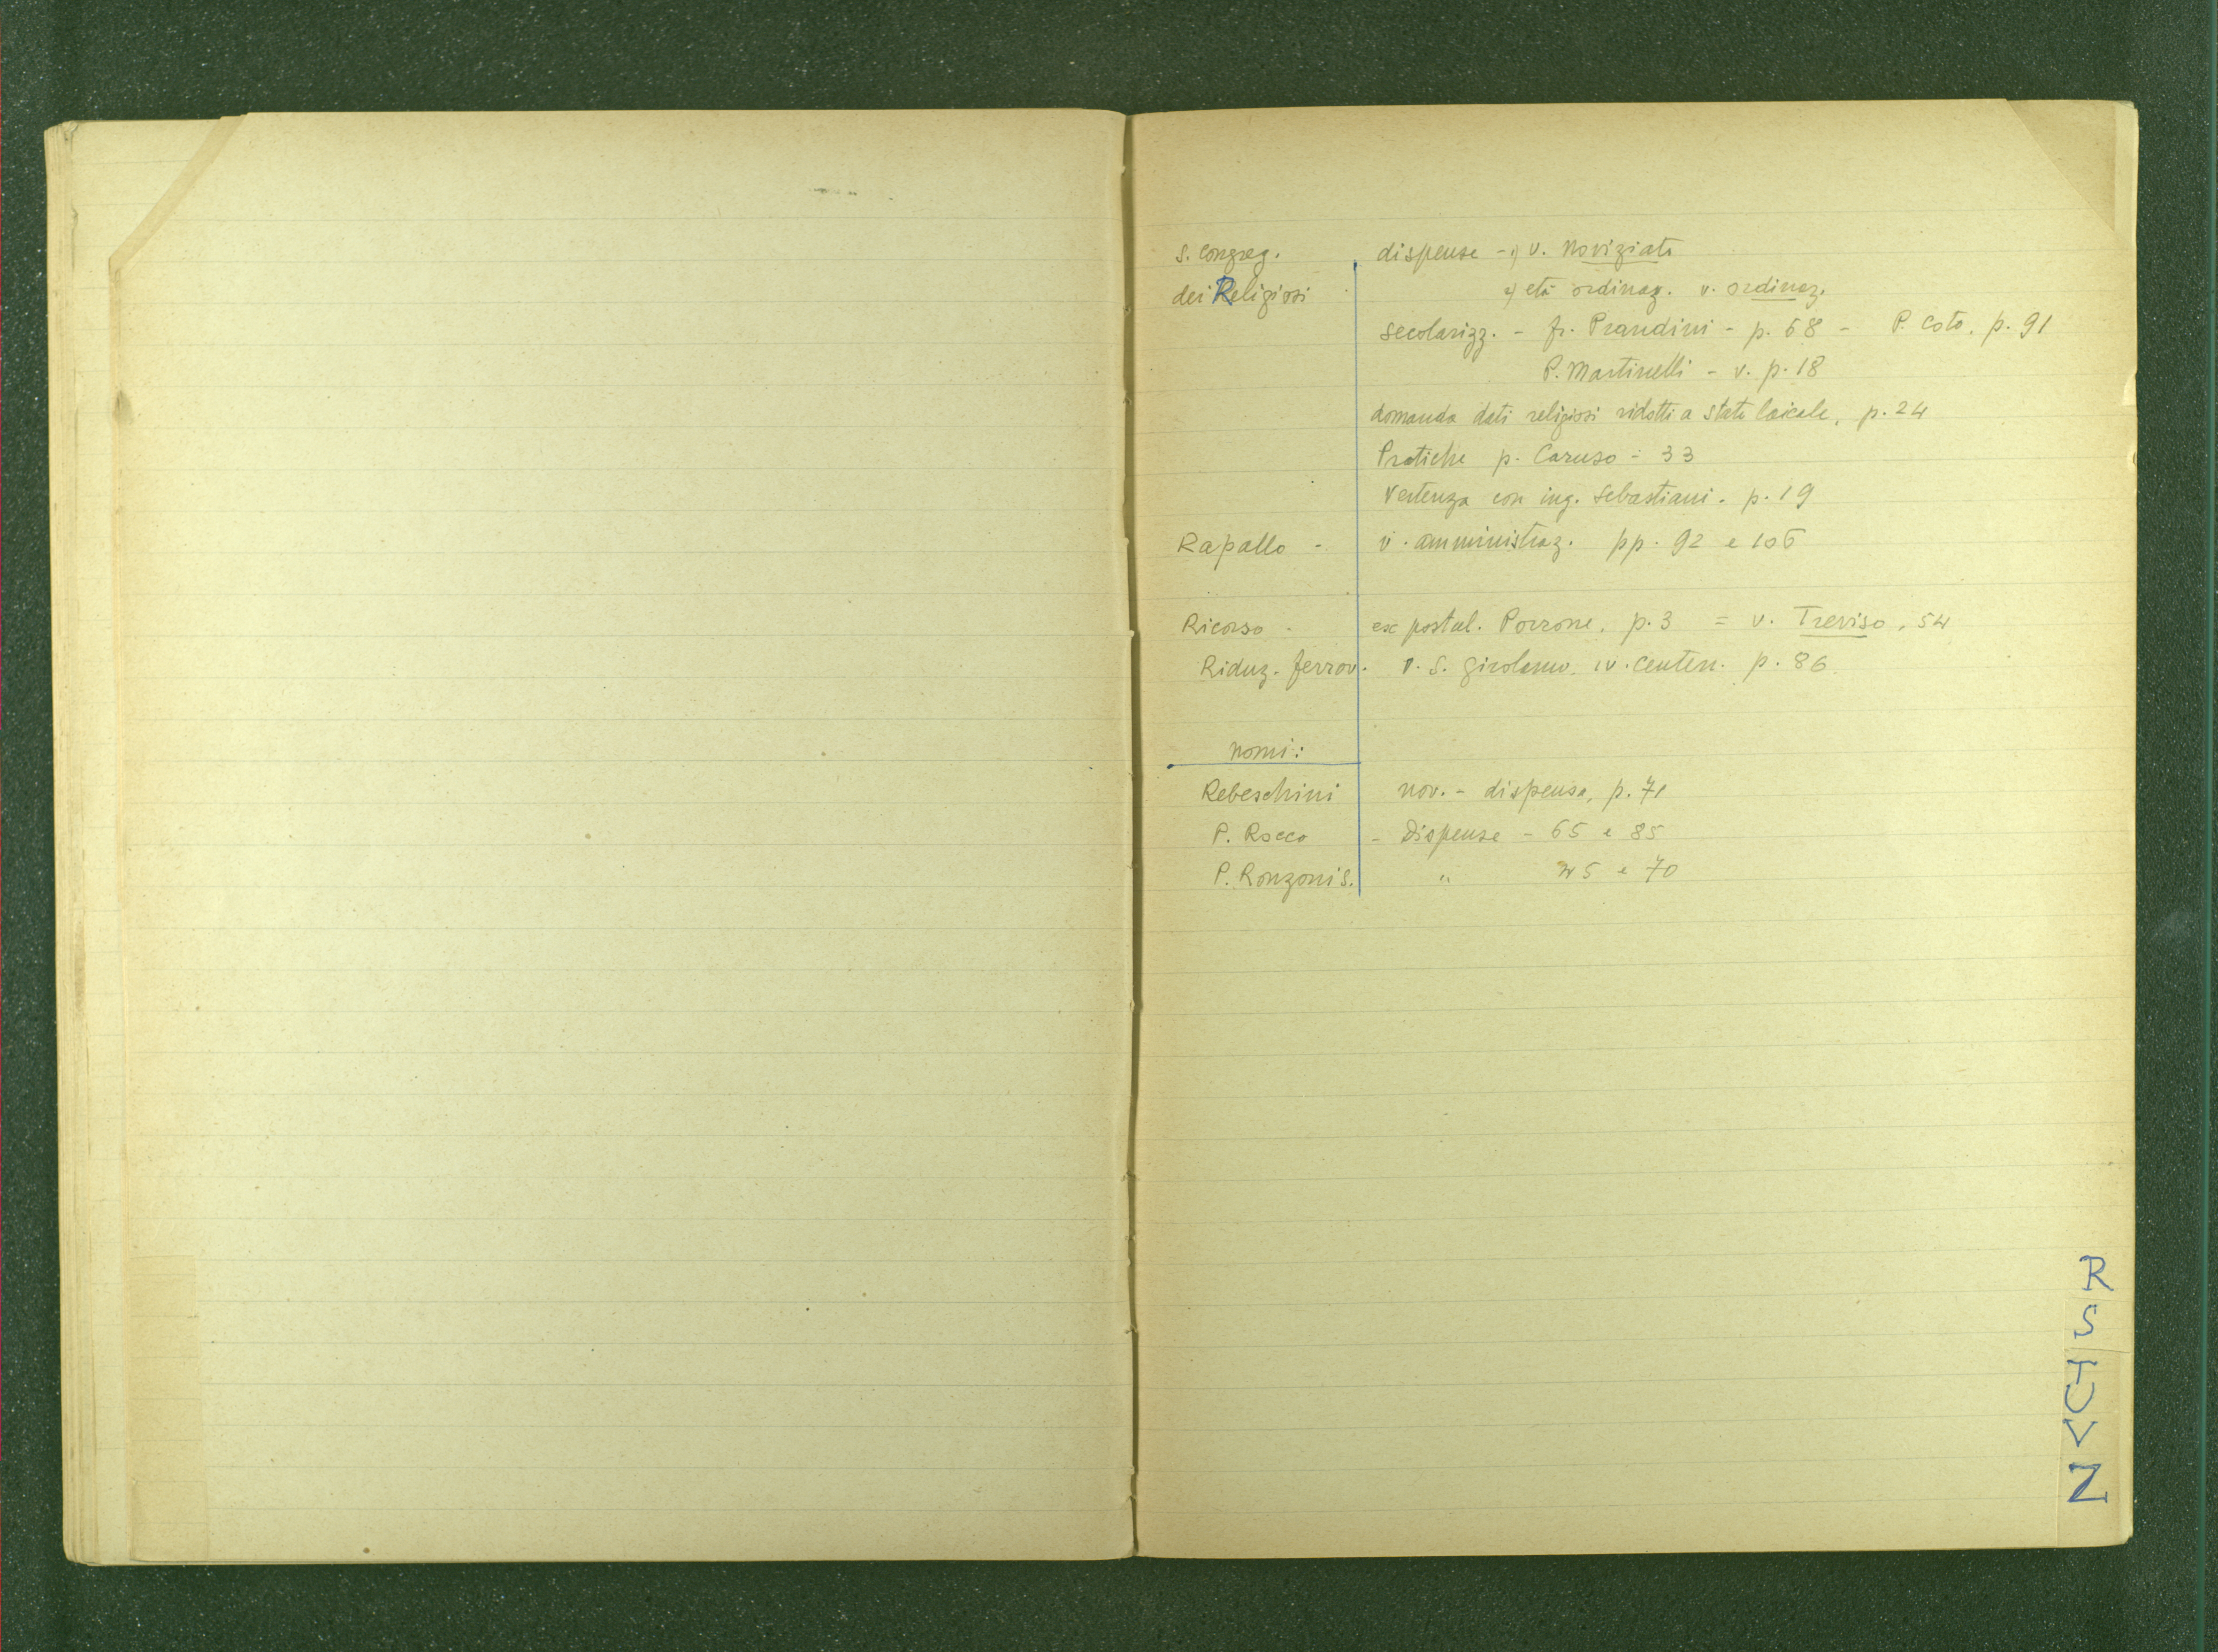 S. Congreg. dispense - 1) v. Noviziato
dei Religiosi 2) età ordinaz. v. ordinaz.
secolarizz. - fr. Prandini - p. 68 - P. Coto, p. 91
P. Martinelli - v. p. 18
domanda dati religiosi ridotti a stato laicale, p. 24
Pratiche p. Caruso = 33
Vertenza con ing. Sebastiani. p. 19
Rapallo - v. amministraz. pp. 92 e 106
Ricorso - ex postul. Porrone, p. 3 = v. Treviso, 54
Riduz. ferrov. v. S. Girolamo, IV. Centen. p. 86.
nomi:
Rebeschini nov. - dispensa, p. 71
P. Rocco - Dispense - 65 e 85
P. Ronzoni S. " 45 e 70
R
S
T
U
V
Z